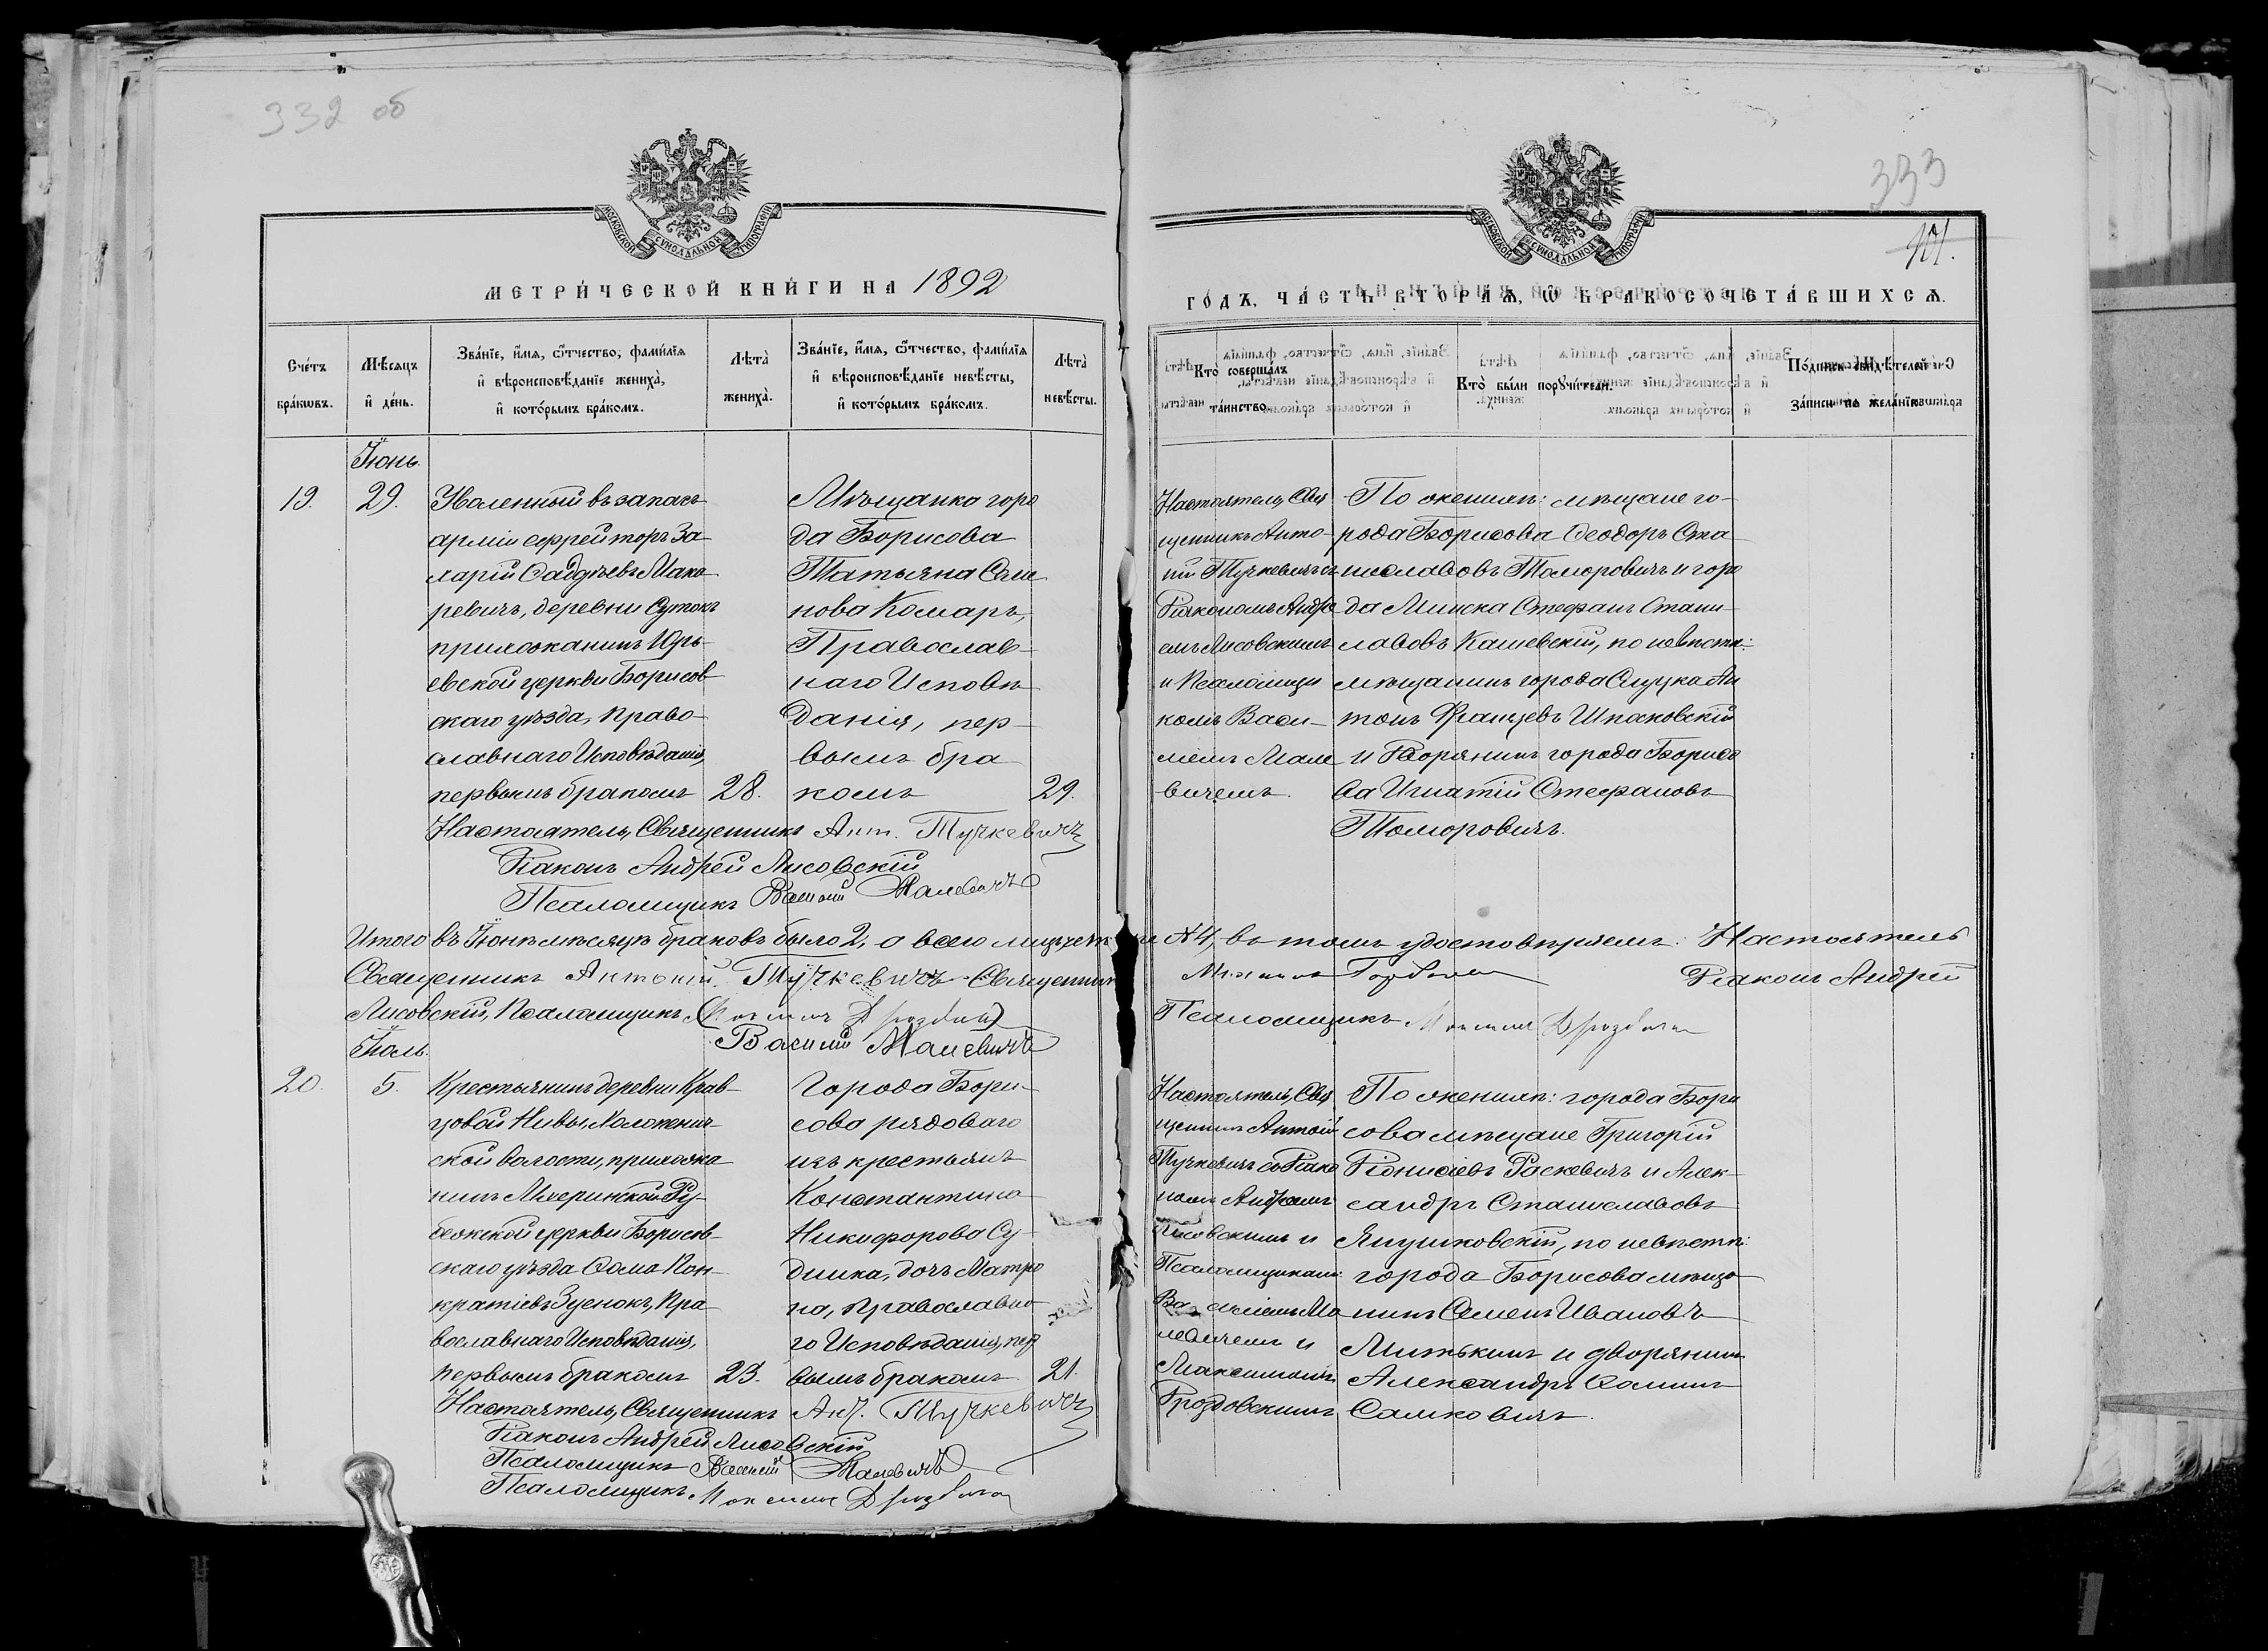 332 об
МОСКОВСКОЙ СѴНОДАЛЬНОЙ ТИПОГРАФІИ
МЕТРИ́ЧЕСКОЙ КНИ́ГИ НА 1892
Сче́тъ бра́кωвъ.
Мѣ́сяцъ и҆ де́нь.
Зва́нїе, и҆́мѧ, ѻ҆́тчество, фами́лїѧ
и҆ вѣроисповѣ́данїе жениха̀,
и҆ кото́рымъ бра́комъ.
Лѣта̀ жениха̀.
Зва́нїе, и҆́мѧ, ѻ҆́тчество, фами́лїѧ
и҆ вѣроисповѣ́данїе невѣ́сты,
и҆ кото́рымъ бра́комъ.
Лѣта̀ невѣ́сты.
Іюнь.
19.
29.
Уволенный въ запасъ
арміи ефрейторъ За
харій Фаддѣевъ Мака
ревичъ, деревни Сутокъ
прихожанинъ Юрь-
евской церкви Борисов-
скаго уѣзда, право-
славнаго Исповѣданія,
первымъ бракомъ
28.
Мѣщанка горо
да Борисова
Татьяна Семе
нова Комаръ,
Православ-
наго Исповѣ-
данія, пер-
вымъ бра
комъ
29.
Настоятель, Священникъ Ант. Тучкевичъ
Діаконъ Андрей Лисовскій
Псаломщикъ Василій Малевичъ
Итого въ Іюнѣ мѣсяцѣ браковъ было 2, а всего лицъ
Священникъ Антоній Тучкевичъ Священникъ
Лисовскій, Псаломщикъ
Василій Малевичъ
Іюль.
20.
5.
Крестьянинъ деревни Крав-
цовой Нивы, Холопенич-
ской волости, прихожа
нинъ
церкви Борисов-
скаго уѣзда Фома Пан-
кратіевъ Зуенокъ, Пра-
вославнаго Исповѣданія,
первымъ бракомъ
23.
Города Бори-
сова рядоваго
изъ крестьянъ
Константина
Никифорова Су-
дника, дочь Матро
на, Православна
го Исповѣданія, пер
вымъ бракомъ
21.
Настоятель, Священникъ Ант. Тучкевичъ
Діаконъ Андрей Лисовскій
Псаломщикъ Василій Малевичъ
Псаломщикъ
333
101.
МОСКОВСКОЙ СѴНОДАЛЬНОЙ ТИПОГРАФІИ
ГО́ДЪ, ЧА́СТЬ ВТОРА́Ѧ, Ѽ БРАКОСОЧЕТА́ВШИХСѦ.
Кто̀ соверша́лъ та́инство.
Кто̀ бы́ли порꙋчи́тели.
По́дписи свидѣ́телей за́писи по жела́нїю.
Настоятель, Свя
щенникъ Анто-
ній Тучкевичъ съ
Діакономъ Андре
емъ Лисовскимъ
и Псаломщи
комъ Васи-
ліемъ Мале
вичемъ.
По женихѣ: мѣщане го-
рода Борисова Феодоръ Ста
ниславовъ Таморовичъ и горо
да Минска Стефанъ Стани-
славовъ Кашевскій, по невѣстѣ:
мѣщанинъ города Слуцка Ан
тонъ Францевъ Шпаковскій
и Дворянинъ города Борисо
ва Игнатій Стефановъ
Таморовичъ.
№ 4, въ томъ удостовѣряемъ: Настоятель
Діаконъ Андрей
Псаломщикъ
Настоятель, Свя
щенникъ Антоній
Тучкевичъ съ Діако
номъ Андреемъ
Лисовскимъ и
Псаломщиками:
Василіемъ Ма
левичемъ и
Максимомъ
Дроздовскимъ
По женихѣ: города Бори
сова мѣщане Григорій
Діонисіевъ Раскевичъ и Алек-
сандръ Станиславовъ
Янушковскій, по невѣстѣ:
города Борисова мѣща-
нинъ Семенъ Ивановъ
Митькинъ и дворянинъ
Александръ Фоминъ
Самковичъ.